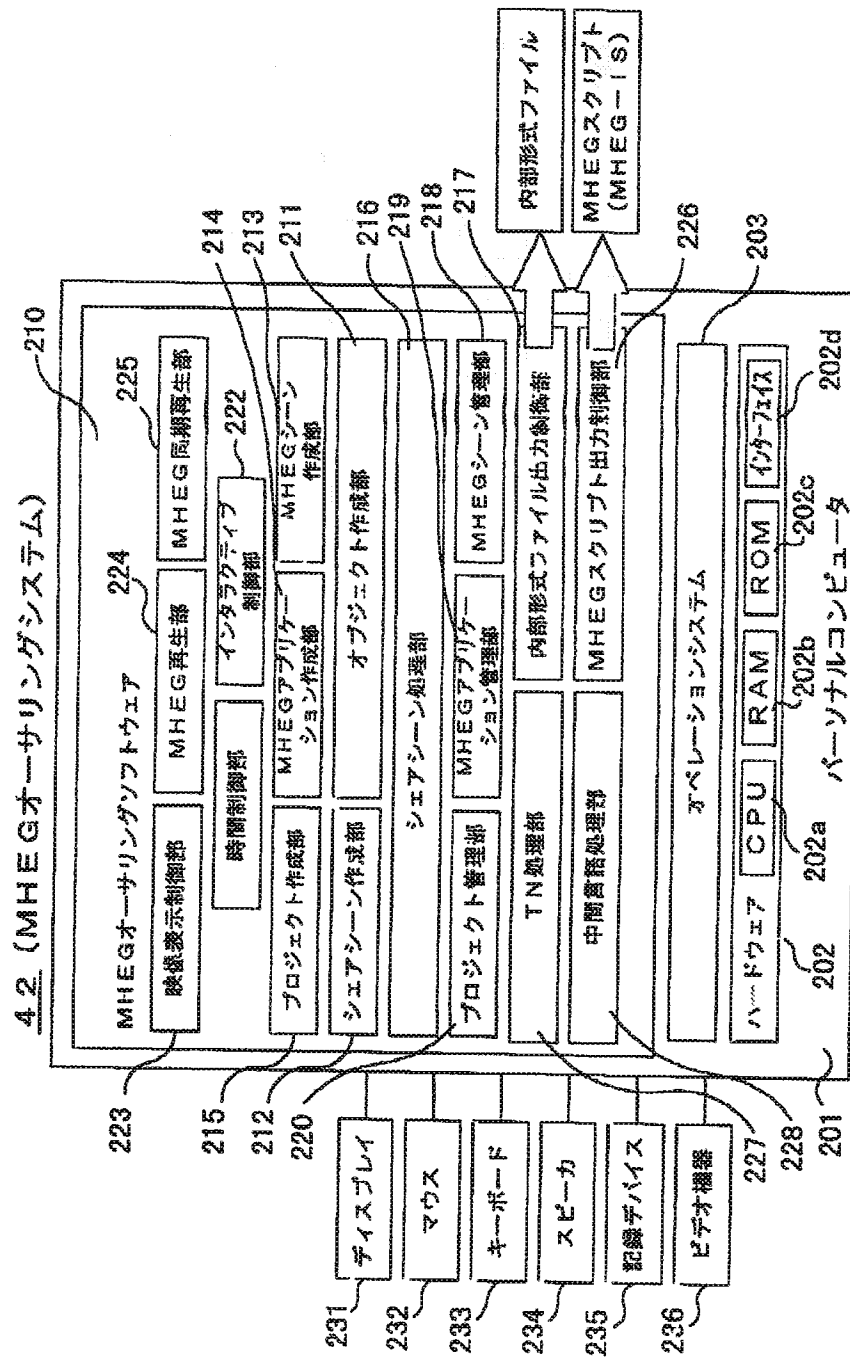 42 (MHEGオーサリングシステム)
210
MHEGオーサリングソフトウェア
223
映像表示制御部
224
MHEG再生部
225
MHEG同期再生部
時間制御部
インタラクティブ
制御部
222
215
プロジェクト作成部
MHEGアプリケー
ション作成部
214
MHEGシーン
作成部
213
212
シェアシーン作成部
オブジェクト作成部
211
シェアシーン処理部
216
220
プロジェクト管理部
MHEGアプリケー
ション管理部
219
MHEGシーン管理部
218
227
TN処理部
内部形式ファイル出力制御部
217
内部形式ファイル
228
中間言語処理部
MHEGスクリプト出力制御部
226
MHEGスクリプト
(MHEG-IS)
オペレーションシステム
203
ハードウェア
202
CPU
202a
RAM
202b
ROM
202c
インターフェイス
202d
201
パーソナルコンピュータ
231
ディスプレイ
232
マウス
233
キーボード
234
スピーカ
235
記録デバイス
236
ビデオ機器